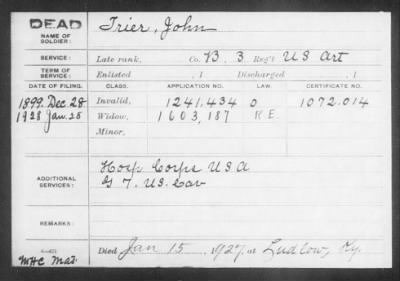 DEAD
NAME OF SOLDIER: Trier, John
SERVICE: Late rank, Co. B. 3. Reg't US Art
TERM OF SERVICE: Enlisted , 1 Discharged , 1
DATE OF FILING. CLASS. APPLICATION NO. LAW. CERTIFICATE NO.
1899. Dec. 28 Invalid, 1241.434 O 1072.014
1928 Jan. 25 Widow, 1603,187 R.E
Minor,
ADDITIONAL SERVICES: Hosp Corps U.S.A
G 7. U.S. Cav
REMARKS:
Died Jan 15, 1927, at Ludlow, Ky.